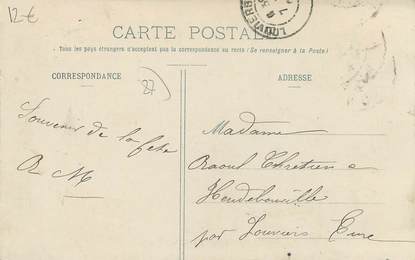 12 €
CARTE POSTALE
LOUVIERS
Tous les pays étrangers n'acceptent pas la correspondance au recto (Se renseigner à la Poste)
CORRESPONDANCE
ADRESSE
87
Souvenir de la fête
R M
Madame
Raoul Chrétienne
Heudebouville
par Louviers Eure